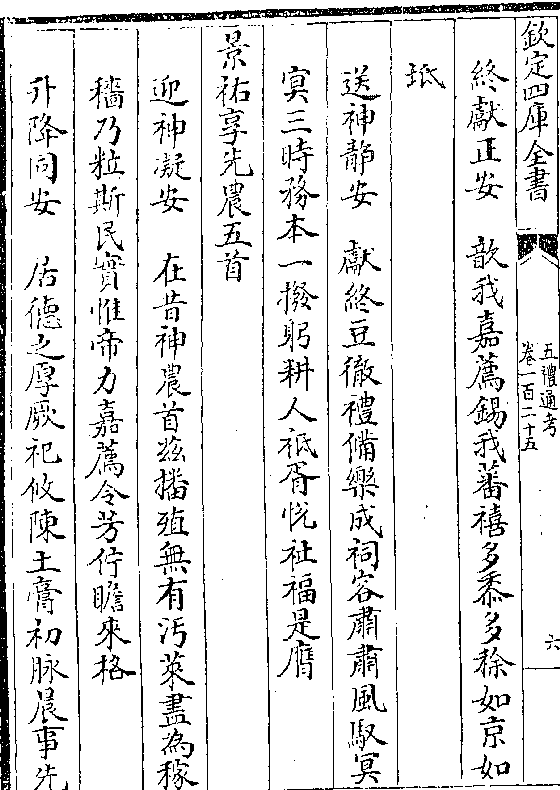 欽定四庫全書
五禮通考
卷一百二十五
六
終獻正安　歆我嘉薦錫我蕃禧多黍多稌如京如
坻
送神靜安　獻終豆徹禮備樂成祠容肅肅風馭冥
冥三時務本一撥躬耕人祗胥悅祉福是膺
景祐享先農五首
迎神凝安　在昔神農首兹播殖無有污萊盡為稼
穡乃粒斯民實惟帝力嘉薦令芳佇瞻來格
升降同安　居德之厚厥祀攸陳土膏初脉晨事先